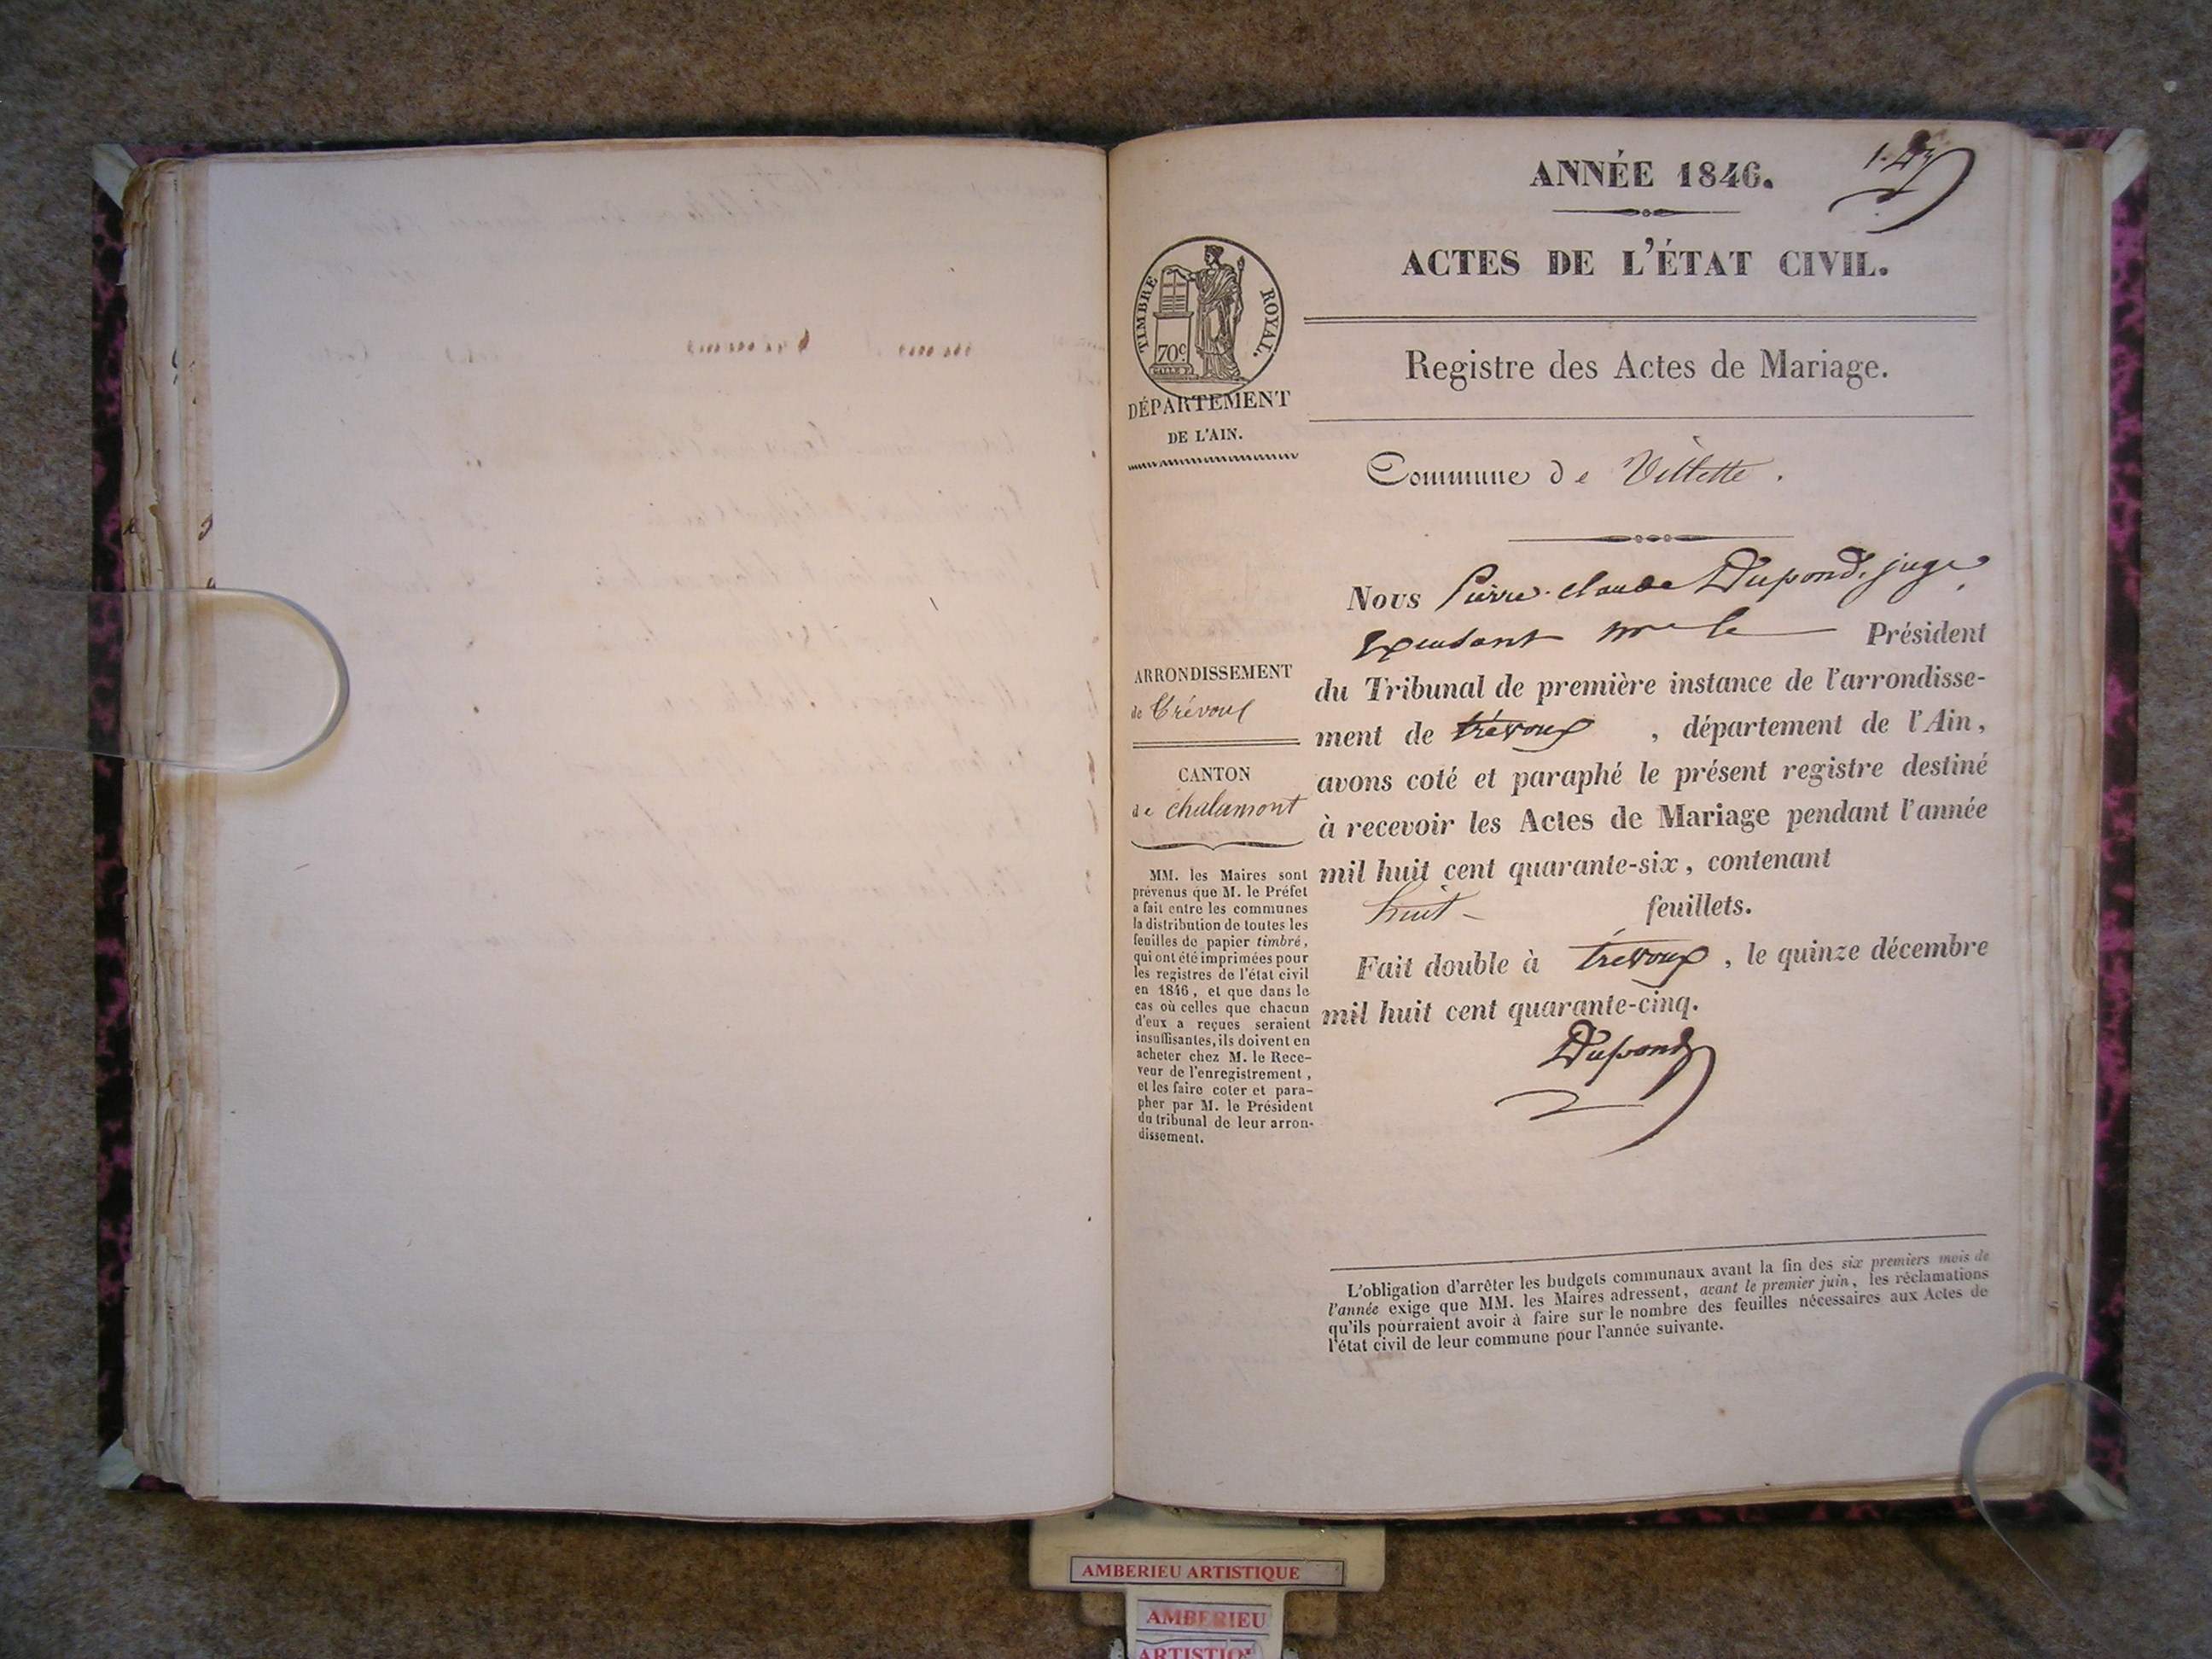 ANNÉE 1846.
ACTES DE L'ÉTAT CIVIL.
TIMBRE ROYAL.
70c
DÉPARTEMENT
DE L'AIN.
Registre des Actes de Mariage.
Commune de Villette.
ARRONDISSEMENT
de Trévoux
CANTON
de Chalamont
MM. les Maires sont
prévenus que M. le Préfet
a fait entre les communes
la distribution de toutes les
feuilles de papier timbré,
qui ont été imprimées pour
les registres de l'état civil
en 1846, et que dans le
cas où celles que chacun
d'eux a reçues seraient
insuffisantes, ils doivent en
acheter chez M. le Rece-
veur de l'enregistrement,
et les faire coter et para-
pher par M. le Président
du tribunal de leur arron-
dissement.
Nous Pierre-Claude Dupond, juge
Mr le Président
du Tribunal de première instance de l'arrondisse-
ment de trévoux, département de l'Ain,
avons coté et paraphé le présent registre destiné
à recevoir les Actes de Mariage pendant l'année
mil huit cent quarante-six, contenant
huit feuillets.
Fait double à trévoux, le quinze décembre
mil huit cent quarante-cinq.
Dupond
L'obligation d'arrêter les budgets communaux avant la fin des six premiers mois de
l'année exige que MM. les Maires adressent, avant le premier juin, les réclamations
qu'ils pourraient avoir à faire sur le nombre des feuilles nécessaires aux Actes de
l'état civil de leur commune pour l'année suivante.
AMBERIEU ARTISTIQUE
AMBERIEU